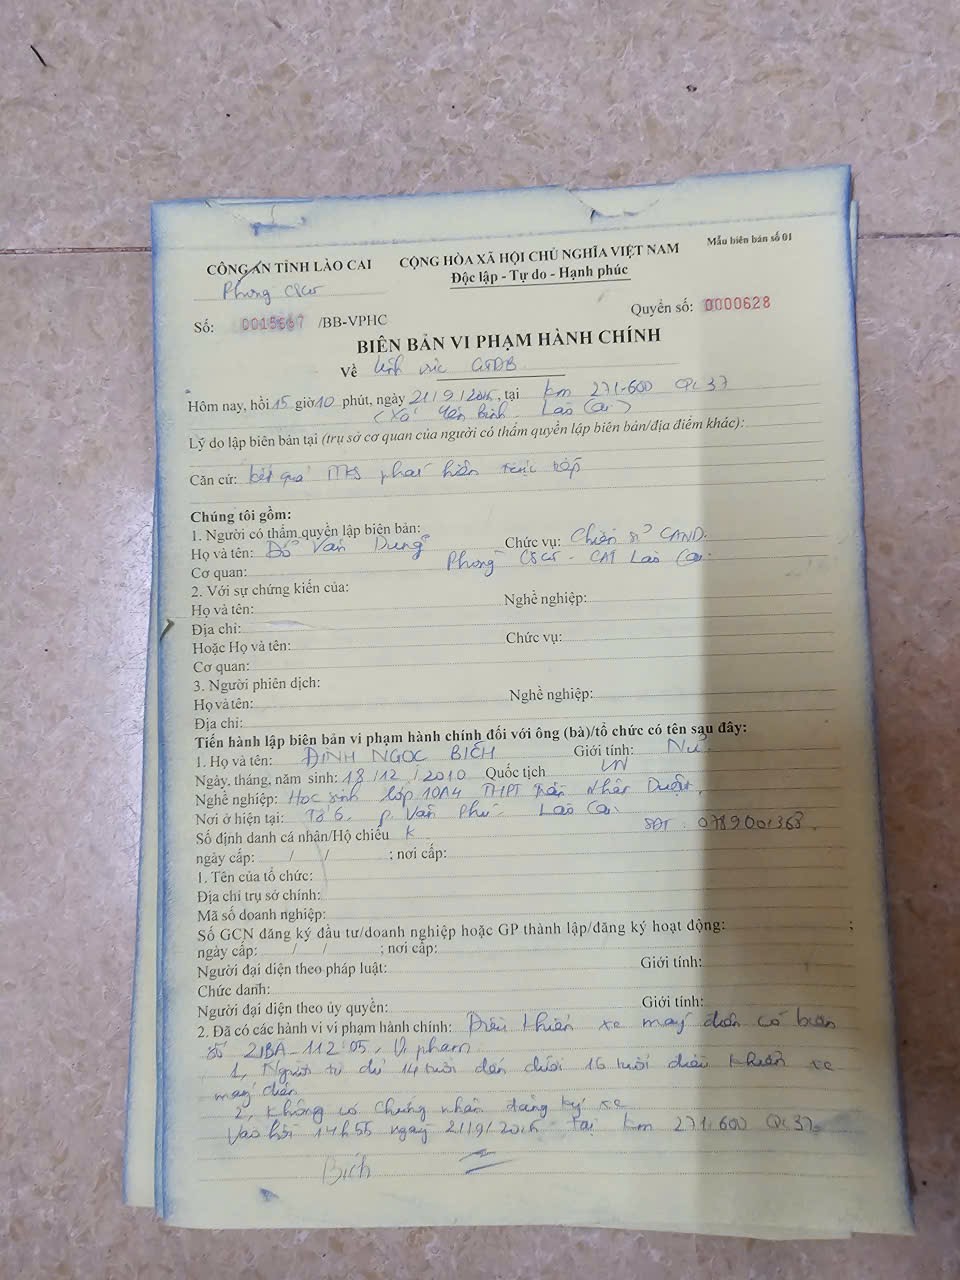 Mẫu biên bản số 01
CÔNG AN TỈNH LÀO CAI
CỘNG HÒA XÃ HỘI CHỦ NGHĨA VIỆT NAM
Phòng CSCĐ
Độc lập - Tự do - Hạnh phúc
Số: /BB-VPHC
Quyển số: 0000628
BIÊN BẢN VI PHẠM HÀNH CHÍNH
Về lĩnh vực GTĐB
Hôm nay, hồi 15 giờ 10 phút, ngày 21/9/2025, tại km 271+600 QL37
(Xã Yên Bình Lào Cai)
Lý do lập biên bản tại (trụ sở cơ quan của người có thẩm quyền lập biên bản/địa điểm khác):
Căn cứ: kết quả phát hiện trực tiếp
Chúng tôi gồm:
1. Người có thẩm quyền lập biên bản:
Họ và tên: Đỗ Văn Dung Chức vụ: Chiến sĩ CAND.
Cơ quan: Phòng CSCĐ - CAT Lào Cai.
2. Với sự chứng kiến của:
Họ và tên: Nghề nghiệp:
Địa chỉ:
Hoặc Họ và tên: Chức vụ:
Cơ quan:
3. Người phiên dịch:
Họ và tên: Nghề nghiệp:
Địa chỉ:
Tiến hành lập biên bản vi phạm hành chính đối với ông (bà)/tổ chức có tên sau đây:
1. Họ và tên: ĐINH NGỌC BÍCH Giới tính: Nữ
Ngày, tháng, năm sinh: 18/12/2010 Quốc tịch VN
Nghề nghiệp: Học sinh lớp 10A4 THPT Trần Nhật Duật,
Nơi ở hiện tại: Tổ 6, p. Văn Phú - Lào Cai
Số định danh cá nhân/Hộ chiếu K SĐT: 0789001368.
ngày cấp: / / ; nơi cấp:
1. Tên của tổ chức:
Địa chỉ trụ sở chính:
Mã số doanh nghiệp:
Số GCN đăng ký đầu tư/doanh nghiệp hoặc GP thành lập/đăng ký hoạt động: ;
ngày cấp: / / ; nơi cấp:
Người đại diện theo pháp luật: Giới tính:
Chức danh:
Người đại diện theo ủy quyền: Giới tính:
2. Đã có các hành vi vi phạm hành chính: Điều khiển xe máy điện có biển
số 21BA-112.05, Vi phạm
1, Người từ đủ 14 tuổi đến dưới 16 tuổi điều khiển xe
máy điện
2, Không có chứng nhận đăng ký xe
Vào hồi 14h55 ngày 21/9/2025 tại km 271+600 QL37.
Bích